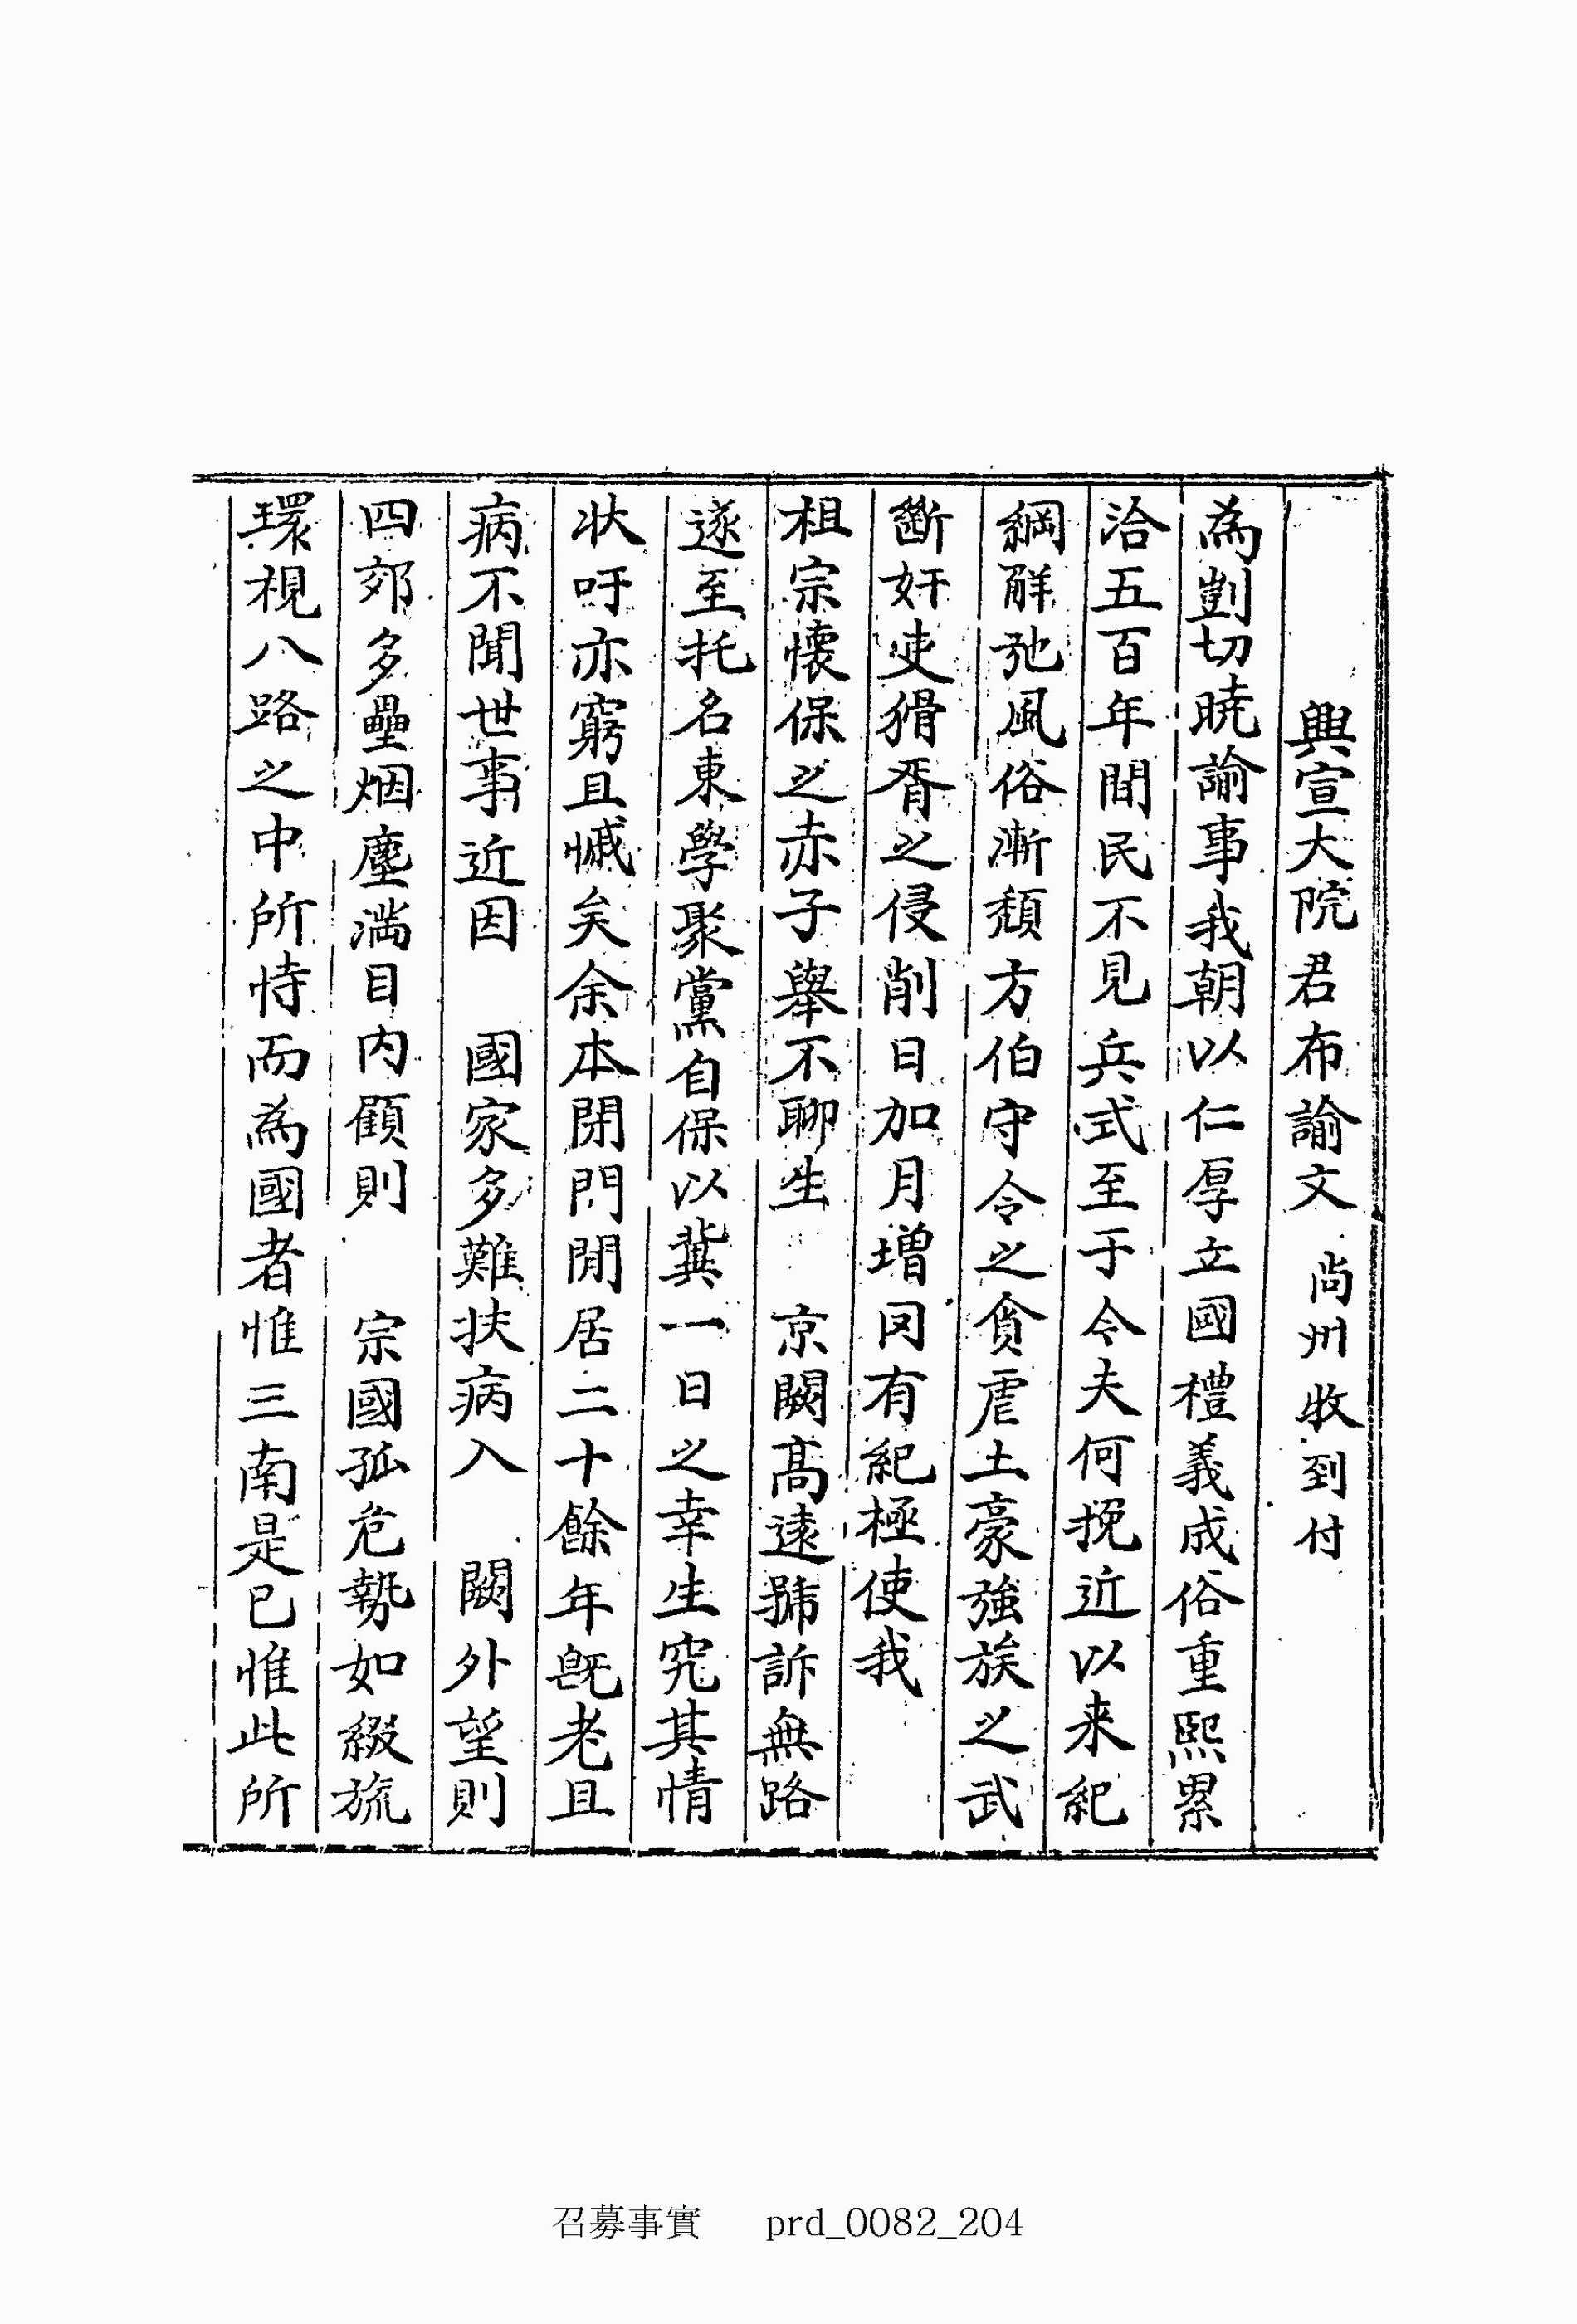 興宣大院君布諭文 尙州收到付
為剴切曉諭事我朝以仁厚立國禮義成俗重熙累
洽五百年間民不見兵式至于今夫何挽近以来紀
綱解弛風俗漸頹方伯守令之貪虐土豪強族之武
斷奸吏猾胥之侵削日加月增罔有紀極使我
祖宗懷保之赤子舉不聊生 京闕高遠號訴無路
遂至托名東學聚黨自保以冀一日之幸生究其情
状吁亦窮且慽矣余本閉門閒居二十餘年旣老且
病不聞世事近因 國家多難扶病入 闕外望則
四郊多壘烟塵满目内顧則 宗國孤危勢如綴旒
環視八路之中所恃而為國者惟三南是已惟此所
召募事實 prd_0082_204